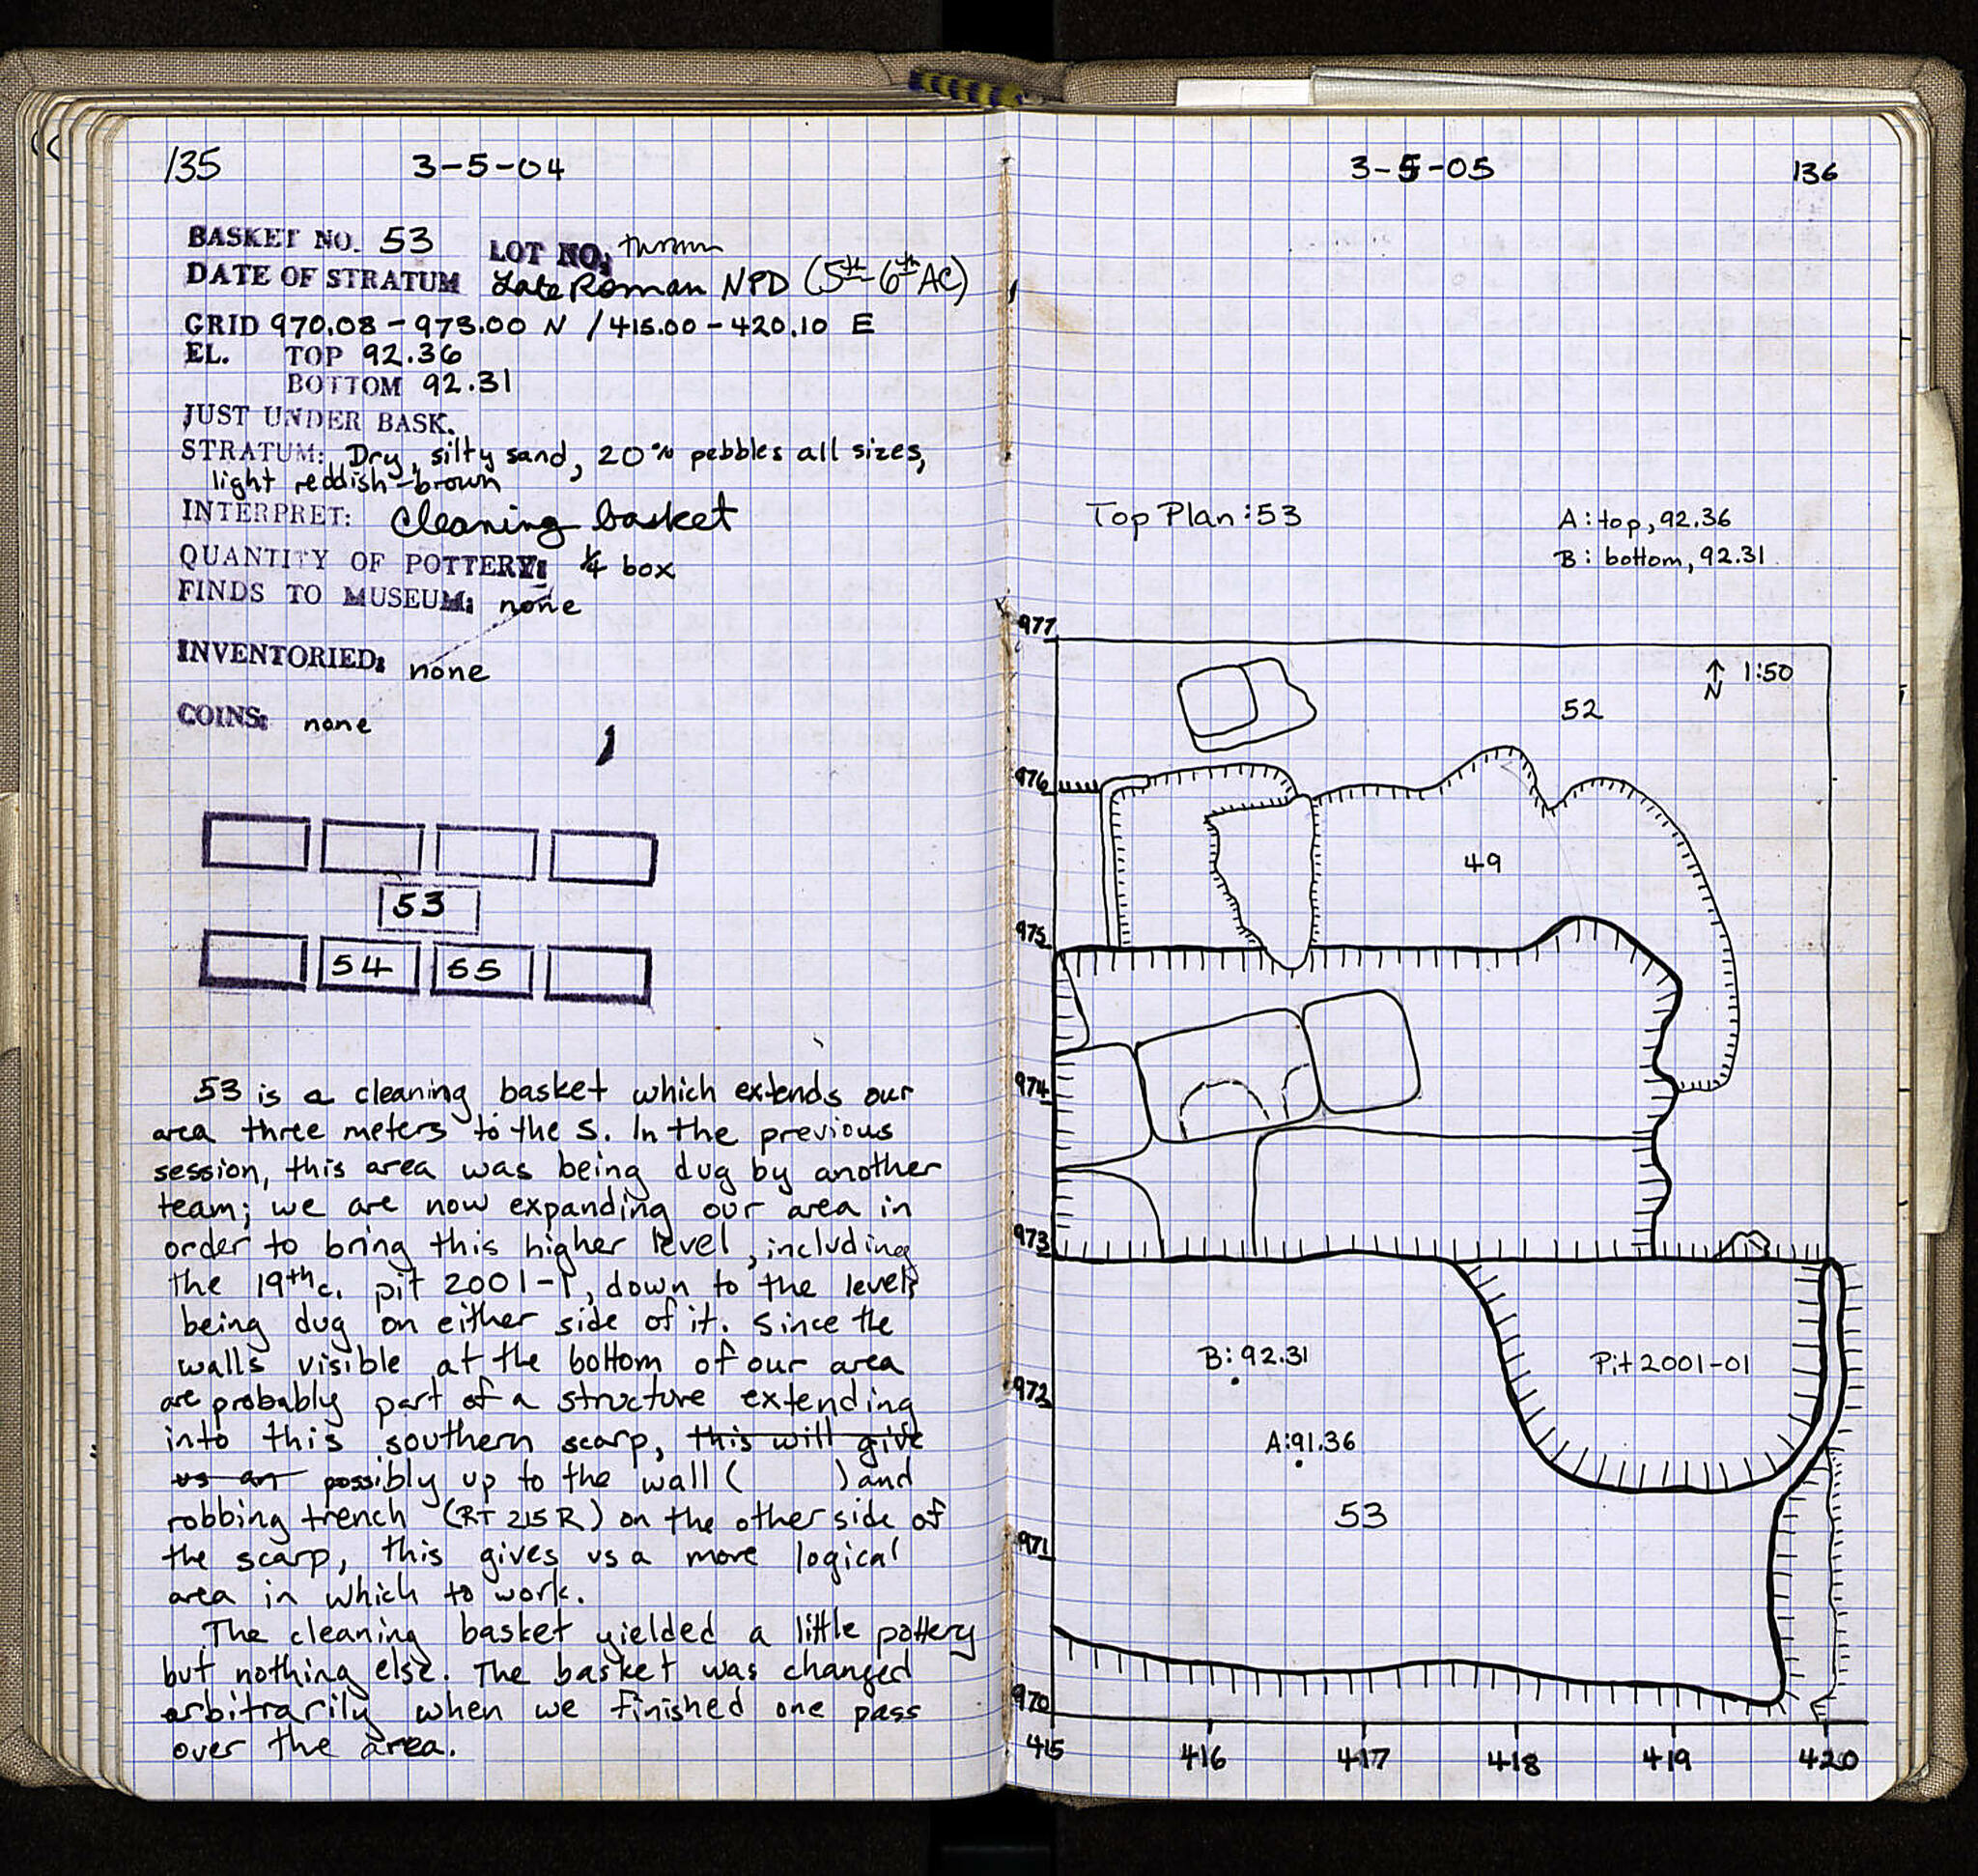 135
3-5-04
BASKET NO. 53 LOT NO: thrown
DATE OF STRATUM Late Roman NPD (5th-6th AC)
GRID 970.08-973.00 N / 415.00-420.10 E
EL. TOP 92.36
BOTTOM 92.31
JUST UNDER BASK.
STRATUM: Dry, silty sand, 20% pebbles all sizes,
light reddish-brown
INTERPRET: Cleaning basket
QUANTITY OF POTTERY: 1/4 box
FINDS TO MUSEUM: none
INVENTORIED: none
COINS: none
53
54 55
53 is a cleaning basket which extends our
area three meters to the S. In the previous
session, this area was being dug by another
team; we are now expanding our area in
order to bring this higher level, including
the 19th c. pit 2001-1, down to the levels
being dug on either side of it. Since the
walls visible at the bottom of our area
are probably part of a structure extending
into this southern scarp, this will give
us an possibly up to the wall ( ) and
robbing trench (RT 215 R) on the other side of
the scarp, this gives us a more logical
area in which to work.
The cleaning basket yielded a little pottery
but nothing else. The basket was changed
arbitrarily when we finished one pass
over the area.
3-5-05
136
Top Plan: 53
A: top, 92.36
B: bottom, 92.31
977
↑ 1:50
N
52
976
49
975
974
973
B: 92.31
Pit 2001-01
972
A: 91.36
53
971
970
415 416 417 418 419 420